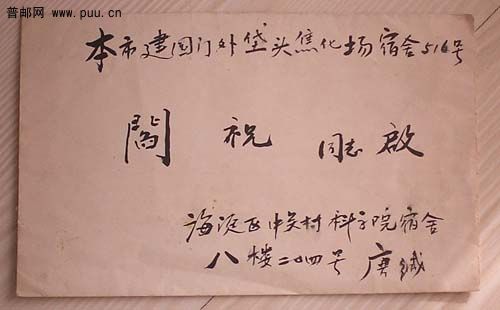 普邮网 www.puu.cn
本市建国门外垡头焦化场宿舍516号
閻 祝 同志 啟
海淀区中关村科学院宿舍
八楼二〇四号 唐缄